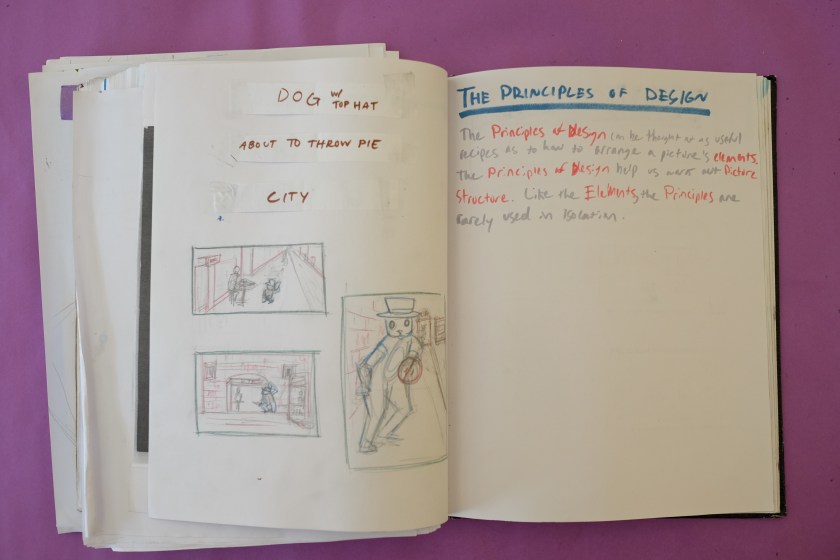 DOG w/
TOP HAT
ABOUT TO THROW PIE
CITY
THE PRINCIPLES OF DESIGN
The Principles of Design can be thought of as useful
recipes as to how to arrange a picture's elements.
The Principles of Design help us work out Picture
Structure. Like the Elements, the Principles are
rarely used in isolation.